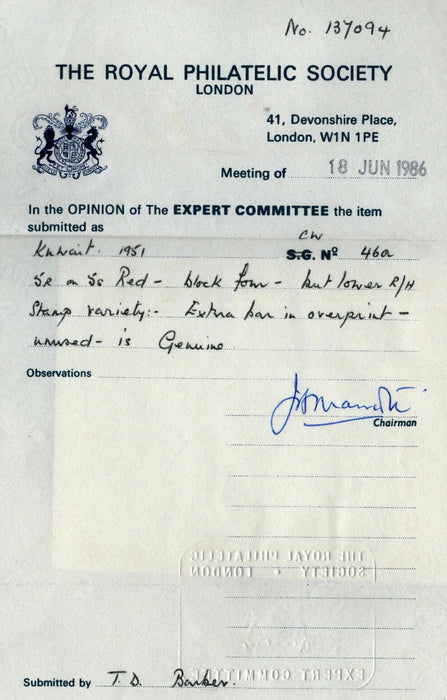 No. 137094
THE ROYAL PHILATELIC SOCIETY
LONDON
41, Devonshire Place,
London, W1N 1PE
Meeting of 18 JUN 1986
In the OPINION of The EXPERT COMMITTEE the item
submitted as
CW
Kuwait. 1951 S.G. Nº 46a
5R on 5s Red - block four - but lower R/H
Stamp variety:- Extra bar in overprint -
unused - is Genuine.
Observations
Chairman
THE ROYAL PHILATELIC
SOCIETY • LONDON
EXPERT COMMITTEE
Submitted by T. D. Barber.